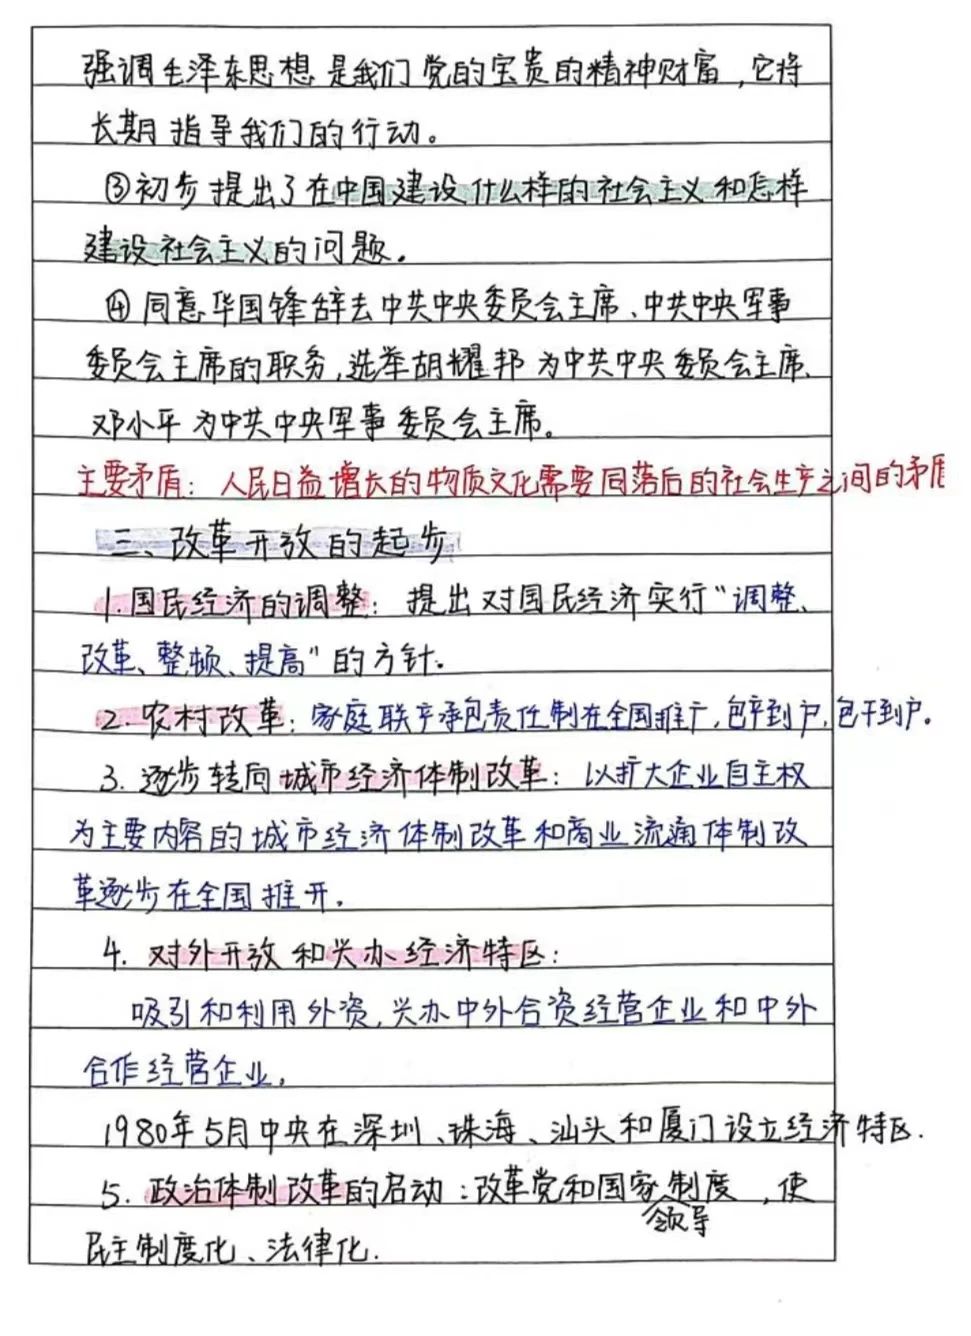 强调毛泽东思想是我们党的宝贵的精神财富,它将
长期指导我们的行动。
③初步提出了在中国建设什么样的社会主义和怎样
建设社会主义的问题。
④同意华国锋辞去中共中央委员会主席、中共中央军事
委员会主席的职务,选举胡耀邦为中共中央委员会主席、
邓小平为中共中央军事委员会主席。
主要矛盾:人民日益增长的物质文化需要同落后的社会生产之间的矛盾
三、改革开放的起步
1.国民经济的调整:提出对国民经济实行"调整、
改革、整顿、提高"的方针。
2.农村改革:家庭联产承包责任制在全国推广,包产到户,包干到户。
3.逐步转向城市经济体制改革:以扩大企业自主权
为主要内容的城市经济体制改革和商业流通体制改
革逐步在全国推开。
4.对外开放和兴办经济特区:
吸引和利用外资,兴办中外合资经营企业和中外
合作经营企业。
1980年5月中央在深圳、珠海、汕头和厦门设立经济特区.
5.政治体制改革的启动:改革党和国家领导制度,使
民主制度化、法律化.